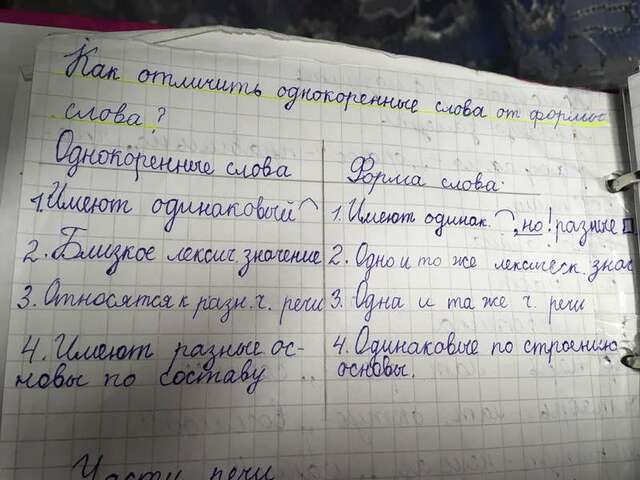 Как отличить однокоренные слова от формы
слова?
Однокоренные слова
1. Имеют одинаковый
2. Близкое лексич. значение
3. Относятся к разн. ч. речи
4. Имеют разные ос-
новы по составу
Форма слова.
1. Имеют одинак. , но! разные
2. Одно и то же лексическ. знач
3. Одна и та же ч. речи
4. Одинаковые по строению
основы.
Части речи